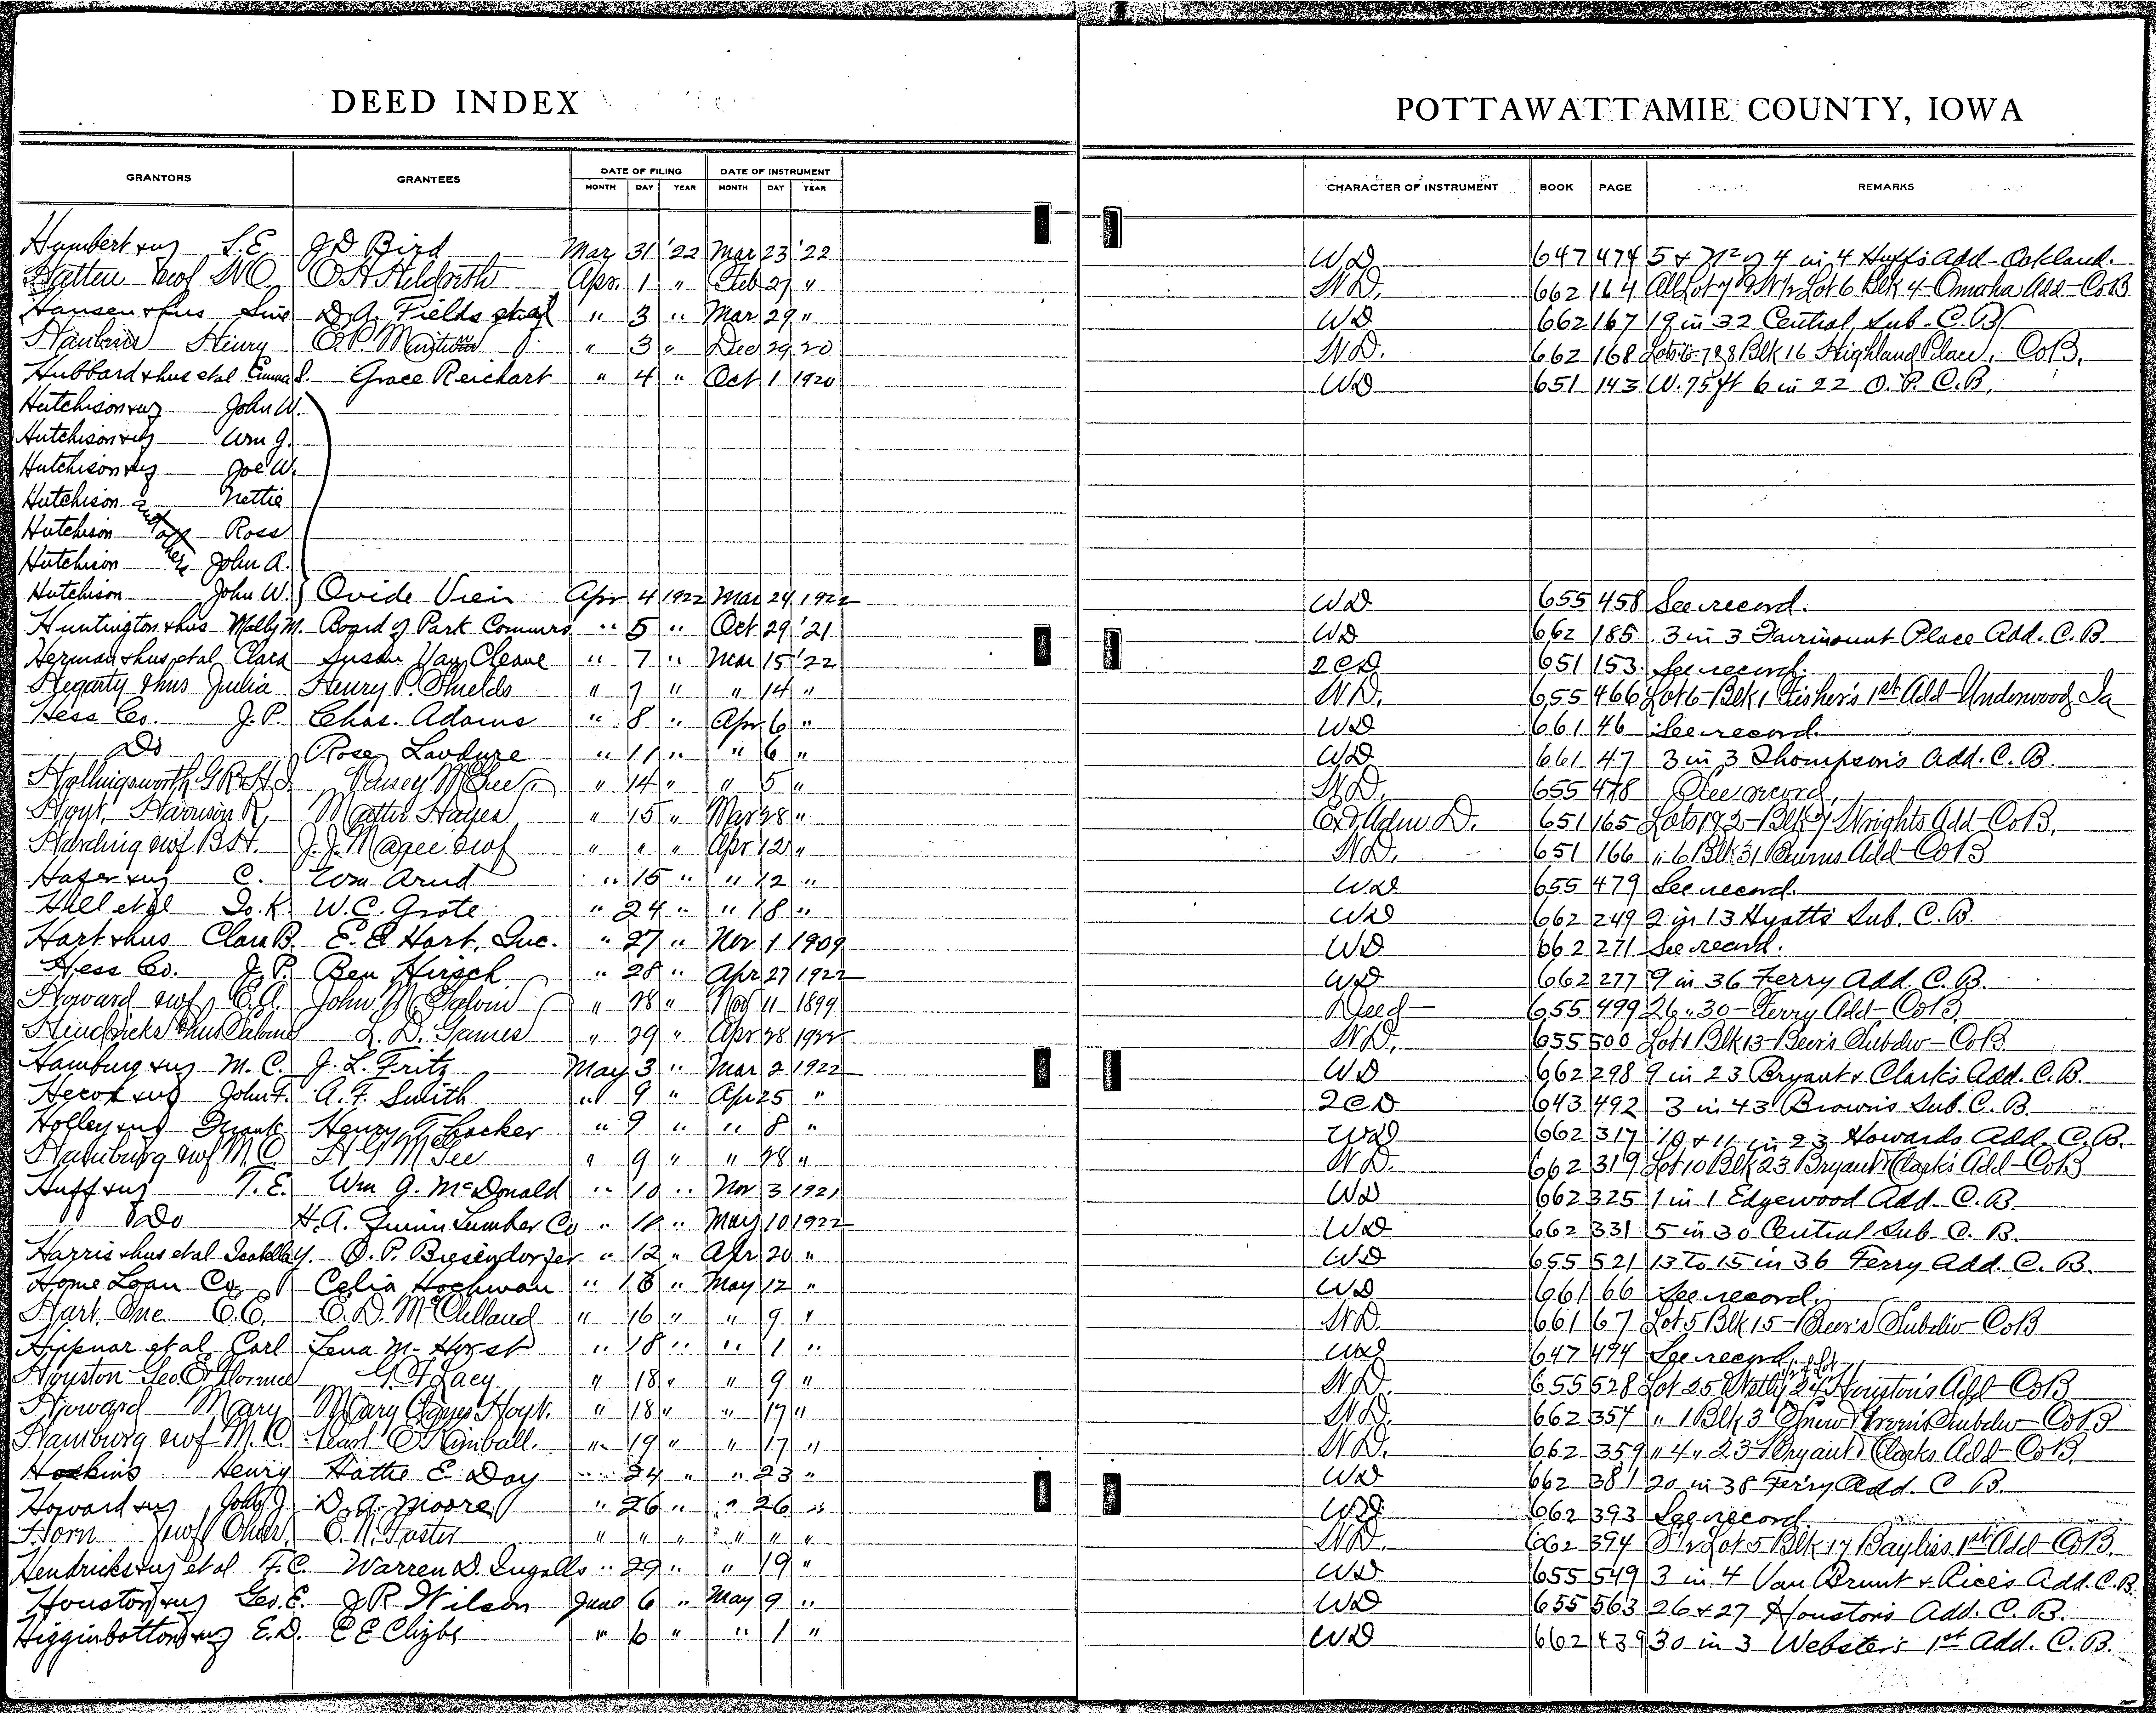 DEED INDEX
POTTAWATTAMIE COUNTY, IOWA
GRANTORS GRANTEES DATE OF FILING DATE OF INSTRUMENT CHARACTER OF INSTRUMENT BOOK PAGE REMARKS
MONTH DAY YEAR MONTH DAY YEAR
Humbert & wf S.E. J D Bird Mar 31 '22 Mar 23 '22 WD 647 474 5 & N½ of 4 in 4 Huff's Add - Oakland.
Hatten & wf O A Hildreth Apr. 1 " Feb 27 " W.D. 662 164 All Lot 7 & W½ Lot 6 Blk 4 - Omaha Add - Co B
Hansen & hus Sine D. A. Fields et al " 3 " Mar 29 " WD 662 167 19 in 32 Central Sub. C.B.
Henry E. P. " 3 " Dec 29 20 W.D. 662 168 Lots 6-7 & 8 Blk 16 Highland Place, Co B.
Hubbard & hus et al Emma S. Grace Reichart " 4 " Oct 1 1920 WD 651 143 W. 75 ft 6 in 22 O. P. C.B.
Hutchison & wf John W.
Hutchison & wf Wm G.
Hutchison & wf Joe W.
Hutchison Nettie
Hutchison Ross
Hutchison John A.
Hutchison John W. Ovide Vien Apr 4 1922 Mar 24 1922 WD 655 458 See record.
Huntington & hus Molly M. Board of Park Commrs " 5 " Oct 29 '21 WD 662 185 3 in 3 Fairmount Place Add. C.B.
Herman & hus et al Clara Susan Van Cleave " 7 " Mar 15 '22 2CD 651 153 See record.
Hegarty & hus Julia Henry P. Shields " 7 " " 14 " W.D. 655 466 Lot 6 - Blk 1 Fisher's 1st Add - Underwood, Ia
Hess Co. J. P. Chas. Adams " 8 " Apr 6 " WD 661 46 See record.
Do Rose Lavdure " 11 " " 6 " WD 661 47 3 in 3 Thompson's Add. C. B.
Hollingsworth " 14 " " 5 " W.D. 655 478 See record,
Hoyt, Harrison R. Mattie Hayes " 15 " Mar 28 " Adm D. 651 165 Lots 1 & 2 - Blk 7 Wrights Add - Co B.
Harding & wf B H. J. J. Magee & wf " " " Apr 12 " W.D. 651 166 " 6 Blk 31 Burns Add - Co B
Hafer & wf C. Wm Arnd " 15 " " 12 " WD 655 479 See record.
Hill et al Jo. K. W. C. Grote " 24 " " 18 " WD 662 249 2 in 13 Hyatt's Sub. C. B.
Hart & hus Clara B. E. E Hart, Inc. " 27 " Nov 1 1909 WD 662 271 See record.
Hess Co. J. P. Ben Hirsch " 28 " Apr 27 1922 WD 662 277 9 in 36 Ferry Add. C. B.
Howard & wf E. A. John Galvin " 28 " Nov 11 1899 Deed 655 499 26 " 30 - Ferry Add - Co B.
Hendricks & hus L. D. James " 29 " Apr 28 1922 W.D. 655 500 Lot 1 Blk 13 - Beer's Subdiv - Co B
Hamburg & wf M. C. J. L. Fritz May 3 " Mar 2 1922 WD 662 298 9 in 23 Bryant & Clark's Add. C. B.
Hecox & wf John F. A. F. Smith " 9 " Apr 25 " 2CD 643 492 3 in 43 Brown's Sub. C. B.
Holley & wf Frank Henry G Locker " 9 " " 8 " WD 662 317 10 & 11 in 23 Howards Add. C. B.
Hamburg & wf M. C. H G McGee " 9 " " 28 " W.D. 662 319 Lot 10 Blk 23 Bryant & Clark's Add - Co B
Huff & wf T. E. Wm G. McDonald " 10 " Nov 3 1921 WD 662 325 1 in 1 Edgewood Add. C. B.
Do H. A. Quinn Lumber Co " 11 " May 10 1922 WD 662 331 5 in 30 Central Sub. C. B.
Harris & hus et al Isabella Y. O. P. Biesendorfer " 12 " Apr 20 " WD 655 521 13 to 15 in 36 Ferry Add. C. B.
Home Loan Co. Celia Hochman " 16 " May 12 " WD 661 66 See record.
Hart Inc. E. E. E. D. McClelland " 16 " " 9 " W.D. 661 67 Lot 5 Blk 15 - Beer's Subdiv - Co B
Hipnar et al Carl Lena M. Horst " 18 " " 1 " WD 647 494 See record
Houston Geo. E & Florence G. H Lacy " 18 " " 9 " W.D. 655 528 Lot 25 & 24 Houston's Add - Co B
Howard Mary Mary Agnes Hoyt. " 18 " " 17 " W.D. 662 354 " 1 Blk 3 Subdiv - Co B
Hamburg & wf M. C. Pearl E Kimball. " 19 " " 17 " W.D. 662 359 " 4 " 23 Bryant & Clarks Add - Co B.
Hoskins Henry Hattie E Day " 24 " " 23 " WD 662 381 20 in 38 Ferry Add. C. B.
Howard & wf John J. D. A. Moore " 26 " " 26 " WD 662 393 See record
Horn & wf Chas. E. N. Foster " " " " " " W.D. 662 394 S½ Lot 5 Blk 17 Bayliss 1st Add - Co B.
Hendricks & wf et al F. C. Warren D. Ingalls " 29 " " 19 " WD 655 549 3 in 4 Van Brunt & Rice's Add. C. B.
Houston & wf Geo. E. J R Wilson June 6 " May 9 " WD 655 563 26 & 27 Houston's Add. C. B.
Higginbottom & wf E. D. E E Clizbe " 6 " " 1 " WD 662 439 30 in 3 Webster's 1st Add. C. B.